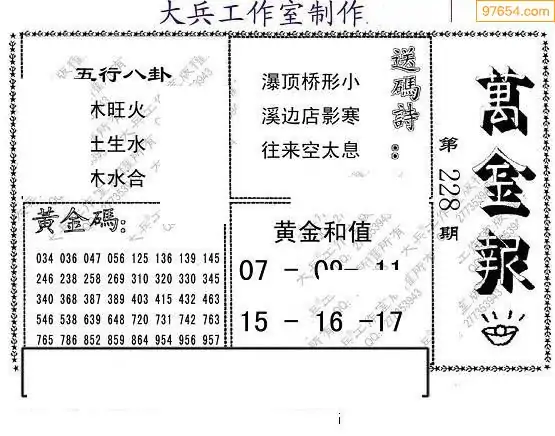 大兵工作室制作
97654.com
五行八卦
木旺火
土生水
木水合
瀑顶桥形小
溪边店影寒
往来空太息
送碼詩：
萬金報
第228期
黄金碼：
034 036 047 056 125 136 139 145
246 238 258 269 310 320 330 345
340 368 387 389 403 415 432 463
546 538 639 648 720 731 742 763
765 786 852 859 864 954 956 957
黄金和值
07 - 09- 11
15 - 16 -17